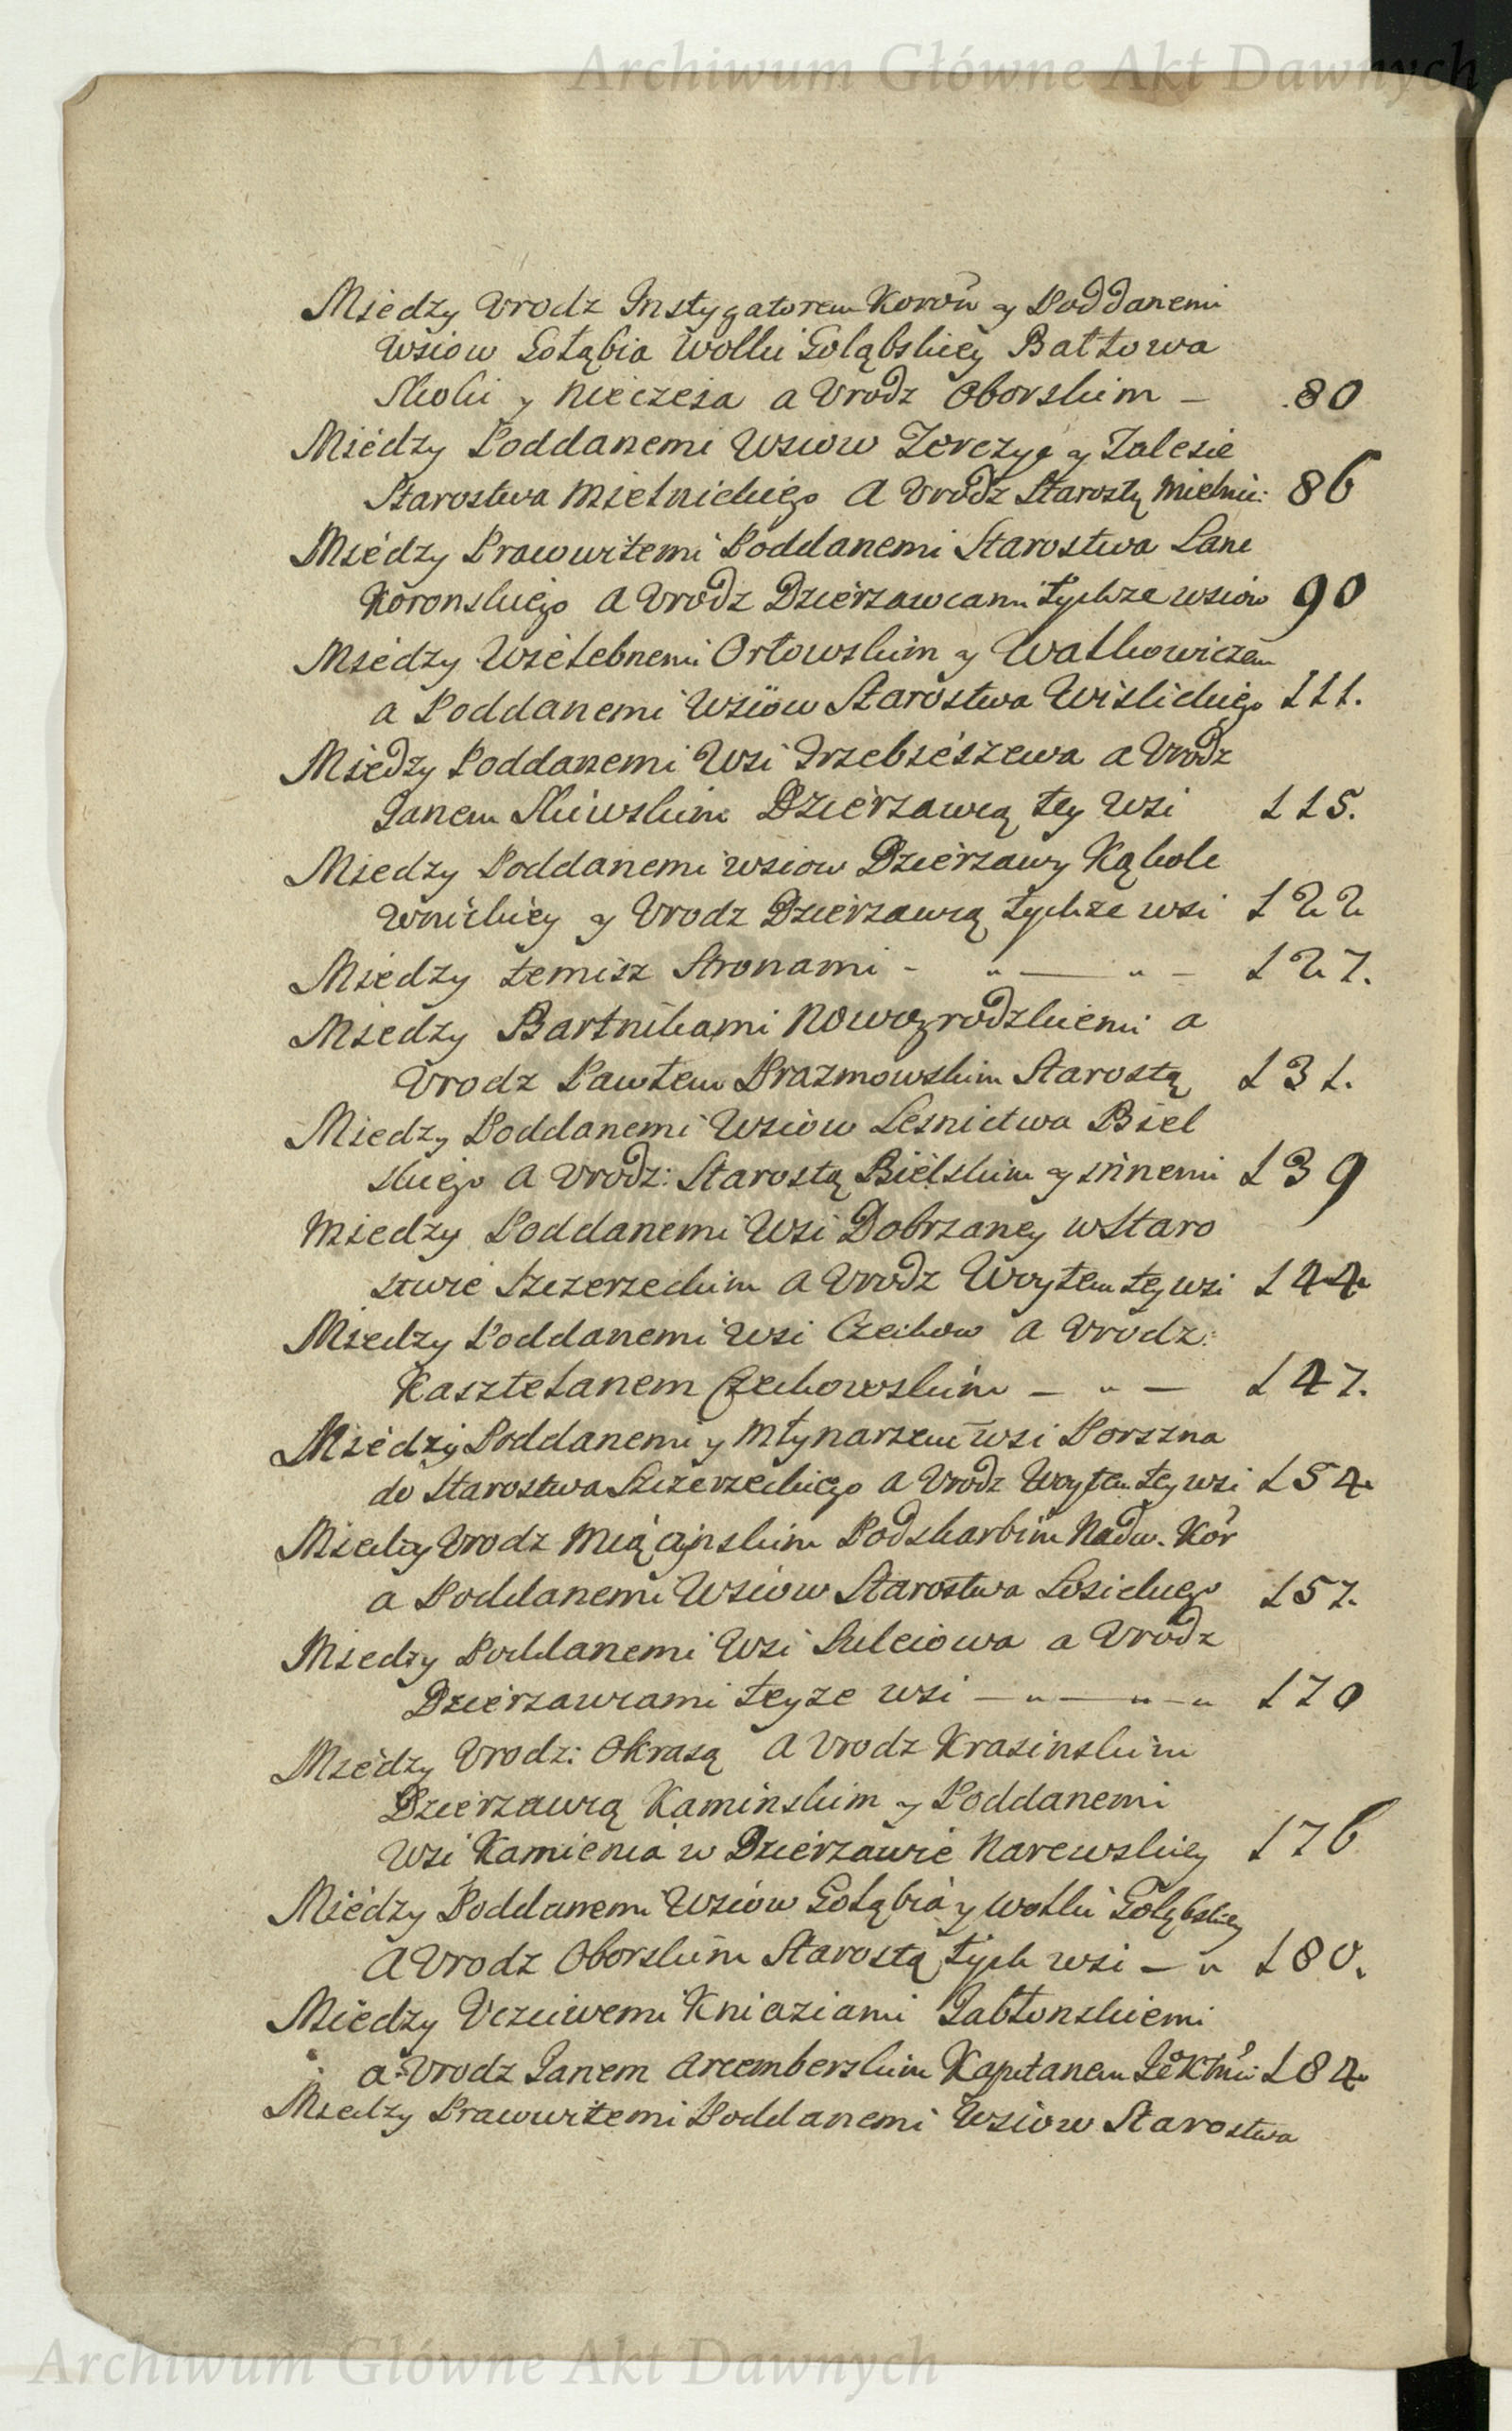 Archiwum Główne Akt Dawnych
Miedzy Vrodz Instygatorem Koron y Poddanemi
Wsiow Gołąbia Wolki Gołąbskiey Bałtowa
Skoki y Nieczeia a Vrodz Oborskim – 80
Miedzy Poddanemi Wsiow Zerczyc y Zalesie
Starostwa Mielnickiego A Vrodz Starostą Mielnic: 86
Miedzy Prawowitemi Poddanemi Starostwa Lanc
Koronskiego A Vrodz Dzierzawcami tychze wsiow 90
Miedzy Wielebnemi Orłowskim y Watkowiczem
a Poddanemi Wsiow Starostwa Wislickiego 111.
Miedzy Poddanemi Wsi Trzebieszewa a Vrodz
Janem Skiwskim Dzierzawcą tey Wsi 115.
Miedzy Poddanemi wsiow Dzierzawy Kąkole
wnickiey y Vrodz Dzierzawcą tychze wsi 122
Miedzy temisz Stronami - „ — „ – 127.
Miedzy Bartnikami Nowogrodzkiemi a
Vrodz Pawłem Prazmowskim Starostą 131.
Miedzy Poddanemi Wsiow Lesnictwa Biel
skiego A Vrodz: Starostą Bielskim y innemi 139
Miedzy Poddanemi Wsi Dobrzaney w Staro
stwie Szczerzeckim A Vrodz Woytem tey wsi 144
Miedzy Poddanemi Wsi Czechow A Vrodz:
Kasztelanem Czechowskim – „ – 147.
Miedzy Poddanemi y Młynarzem wsi Porszna
do Starostwa Szczerzeckiego A Vrodz Woytem tey wsi 154
Miedzy Vrodz Miączynskim Podskarbim Nadw. Kor
a Poddanemi Wsiow Starostwa Losickiego 157.
Miedzy Poddanemi Wsi Suleiowa a Vrodz
Dzierzawcami teyze wsi – „ — „ – „ 170
Miedzy Vrodz: Okrasą A Vrodz Krasinskim
Dzierzawcą Kaminskim y Poddanemi
Wsi Kamienia w Dzierzawie Narewskiey 176
Miedzy Poddanemi Wsiow Gołąbia y Wolki Gołąbskiey
A Vrodz Oborskim Starostą tych wsi – „ 180.
Miedzy Vczciwemi Kniaziami Jabłonskiemi
a Vrodz Janem Arcemberskim Kapitanem 184
Miedzy Prawowitemi Poddanemi Wsiow Starostwa
Archiwum Główne Akt Dawnych